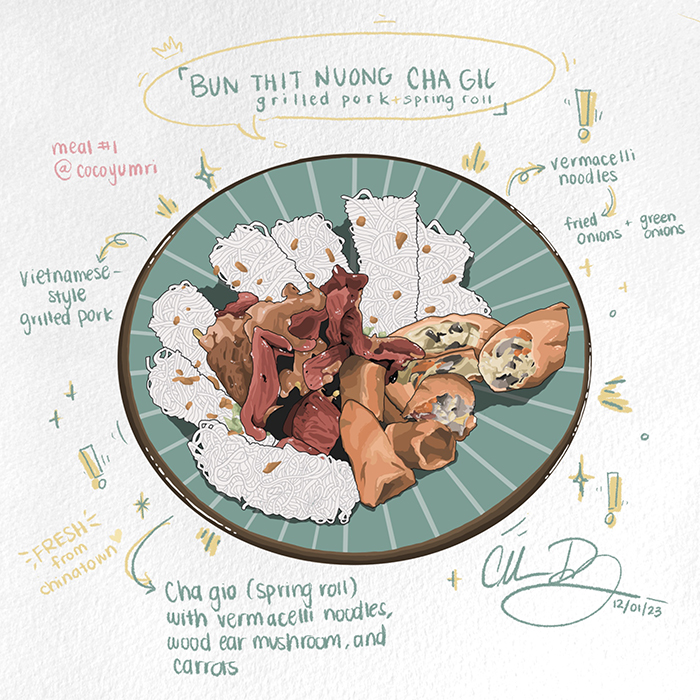 BUN THIT NUONG CHA GIO
grilled pork + spring roll
meal #1
@cocoyumri
vermacelli
noodles
fried onions + green onions
Vietnamese-
style
grilled pork
FRESH
from
chinatown
Cha gio (spring roll)
with vermacelli noodles,
wood ear mushroom, and
carrots
12/01/23